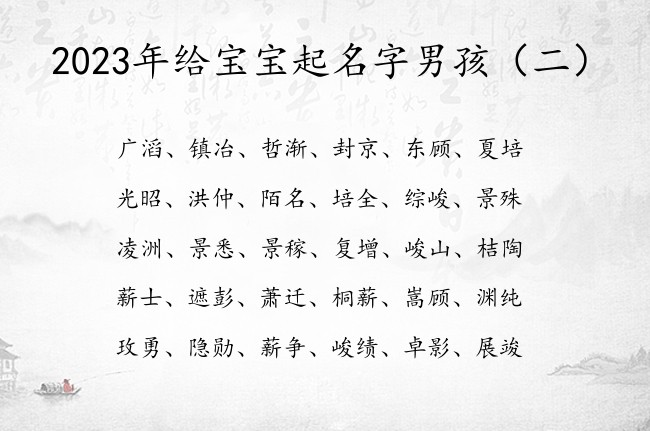 2023年给宝宝起名字男孩（二）
广滔、镇冶、哲渐、封京、东顾、夏培
光昭、洪仲、陌名、培全、综峻、景殊
凌洲、景悉、景稼、复增、峻山、桔陶
薪士、遮彭、萧迁、桐薪、嵩顾、渊纯
玫勇、隐勋、薪争、峻绩、卓影、展竣